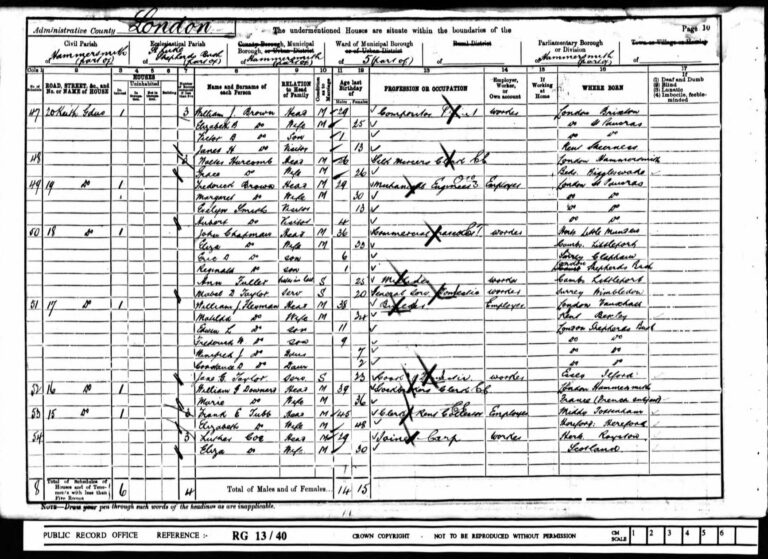 Administrative County London
The undermentioned Houses are situate within the boundaries of the
Page 10
Civil Parish
of Hammersmith (part of)
Ecclesiastical Parish
Shepherds Bush (part of)
County Borough, Municipal Borough, or Urban District
Hammersmith (part of)
Ward of Municipal Borough or of Urban District
5 (part of)
Rural District
Parliamentary Borough or Division
Hammersmith (part of)
Town or Village or Hamlet
Cols 1 2 3 4 5 6 7 8 9 10 11 12 13 14 15 16 17
No. of Schedule
ROAD, STREET, &c., and No. or NAME of HOUSE
HOUSES
Inhabited
Uninhabited
Building
Name and Surname of each Person
RELATION to Head of Family
Condition as to Marriage
Age last Birthday of
Males
Females
PROFESSION OR OCCUPATION
Employer, Worker, or Own account
If Working at Home
WHERE BORN
(1) Deaf and Dumb
(2) Blind
(3) Lunatic
(4) Imbecile, feeble-minded
47 20 Keith Gdns 1 3 William J. Brown Head M 29 Compositor worker London Brixton
Elizabeth B Do Wife M 25 Do St Pancras
Victor B Do Son 1 Do Do
Janet H Do Visitor 13 Kent Sheerness
48 Walter Huscomb Head M 26 London Hammersmith
Grace Do Wife M 26 Beds. Biggleswade
49 19 Do 1 Frederick Brown Head M 29 Engineer Employer London St Pancras
Margaret Do Wife M 30 Do Do
Evelyn Smith Visitor 13 Do Do
Hubert Do Visitor 4 Do Do
50 18 Do 1 John Chapman Head M 36 Commercial Traveller worker Herts Little Munden
Eliza Do Wife M 33 Cambs. Littleport
Eric A Do Son 6 Surrey Clapham
Reginald Do Son 1 London Shepherds Bush
Ann Fuller S 25 worker Cambs Littleport
Mabel L Taylor Serv S 20 General Serv Domestic worker Surrey Wimbledon
51 17 Do 1 William J. Head M 38 Employer London Vauxhall
Matilda Do Wife M 38 Kent Bexley
Edwin L Do Son 11 London Shepherds Bush
Frederick W Do Son 9 Do Do
Winifred J Do Daur 7 Do Do
Constance D Do Daur 2 Do Do
Jane E Taylor Serv S 23 Cook Domestic worker Essex Ilford
52 16 Do 1 William G Downers Head M 39 Clerk London Hammersmith
Marie Do Wife M 36 France
53 15 Do 1 2 Frank E Tubb Head M 45 Clerk Rent Collector Employer Middx Tottenham
Elizabeth Do Wife M 48 Hereford. Hereford
54 3 Luther Coe Head M 29 Joiner Carp worker Herts Royston
Eliza Do Wife M 30 Scotland
8 Total of Schedules of Houses and of Tenements with less than Five Rooms 6 4 Total of Males and of Females... 14 15
NOTE—Draw your pen through such words of the headings as are inapplicable.
PUBLIC RECORD OFFICE REFERENCE :- RG 13 / 40 CROWN COPYRIGHT - NOT TO BE REPRODUCED WITHOUT PERMISSION
CM SCALE 1 2 3 4 5 6